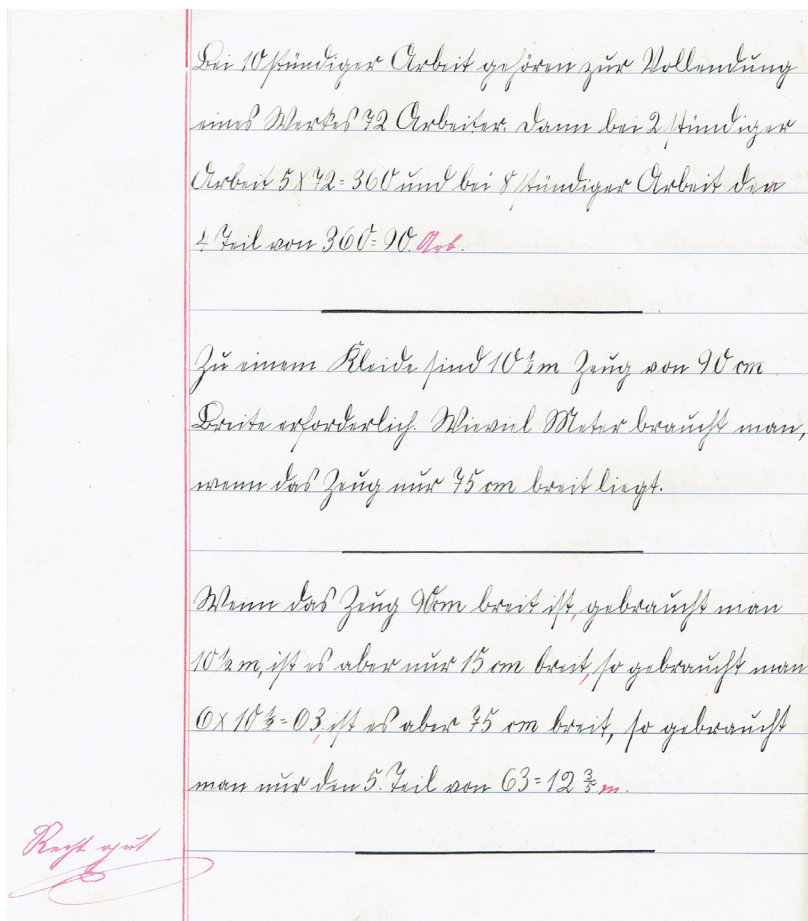 Bei 10 stündiger Arbeit gehören zur Vollendung
eines Werkes 72 Arbeiter. Dann bei 2 stündiger
Arbeit 5 x 72 = 360 und bei 8 stündiger Arbeit der
4 Teil von 360 = 90. Arb.
Zu einem Kleide sind 10 ½ m Zeug von 90 cm
Breite erforderlich. Wieviel Meter braucht man,
wenn das Zeug nur 75 cm breit liegt.
Wenn das Zeug 90 cm breit ist, gebraucht man
10 ½ m, ist es aber nur 15 cm breit, so gebraucht man
6 x 10 ½ = 63, ist es aber 75 cm breit, so gebraucht
man nur den 5. Teil von 63 = 12 3/5 m.
Recht gut